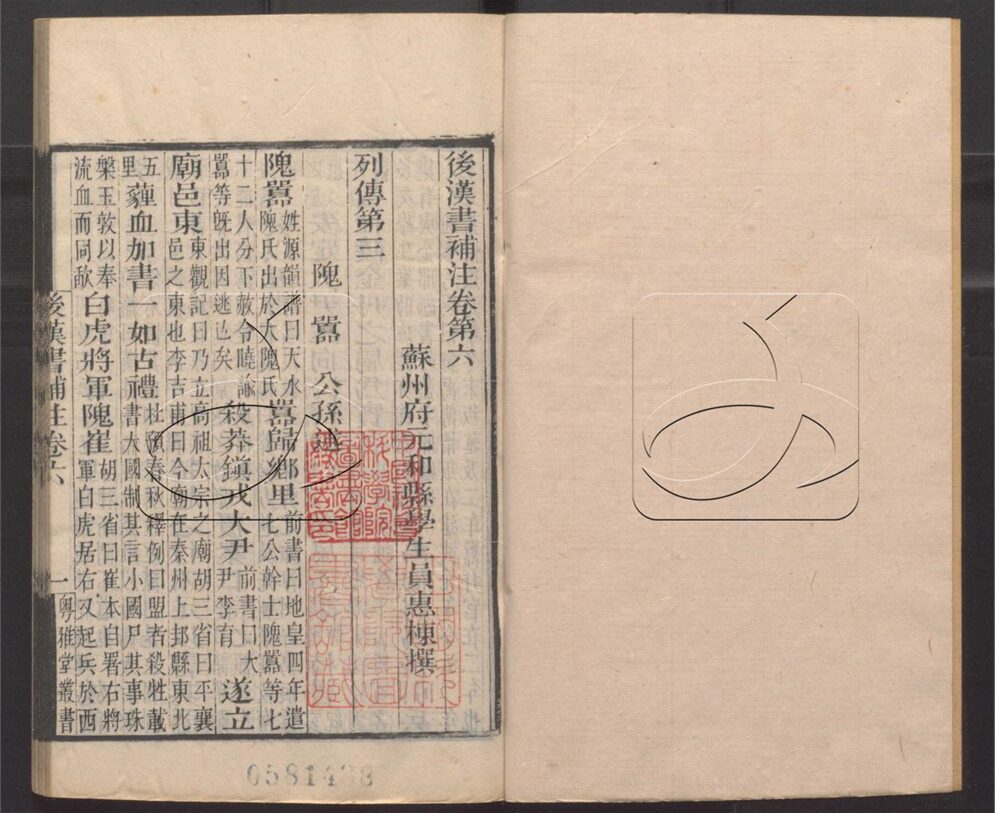 後漢書補注卷第六
蘇州府元和縣學生員惠棟撰
列傳第三
隗囂 公孫述
隗囂姓源韻譜曰天水隗氏出於大隗氏囂歸鄉里前書曰地皇四年遣七公幹士隗囂等七
十二人分下赦令曉諭囂等旣出因逃亾矣殺莽鎭戎大尹前書曰大尹李育遂立
廟邑東東觀記曰乃立高祖太宗之廟胡三省曰平襄邑之東也李吉甫曰今廟在秦州上邽縣東北
五里薶血加書一如古禮杜預春秋釋例曰盟者殺牲載書大國制其言小國尸其事珠
槃玉敦以奉流血而同歃白虎將軍隗崔胡三省曰崔本自署右將軍白虎居右又起兵於西
後漢書補注卷六 一 粤雅堂叢書